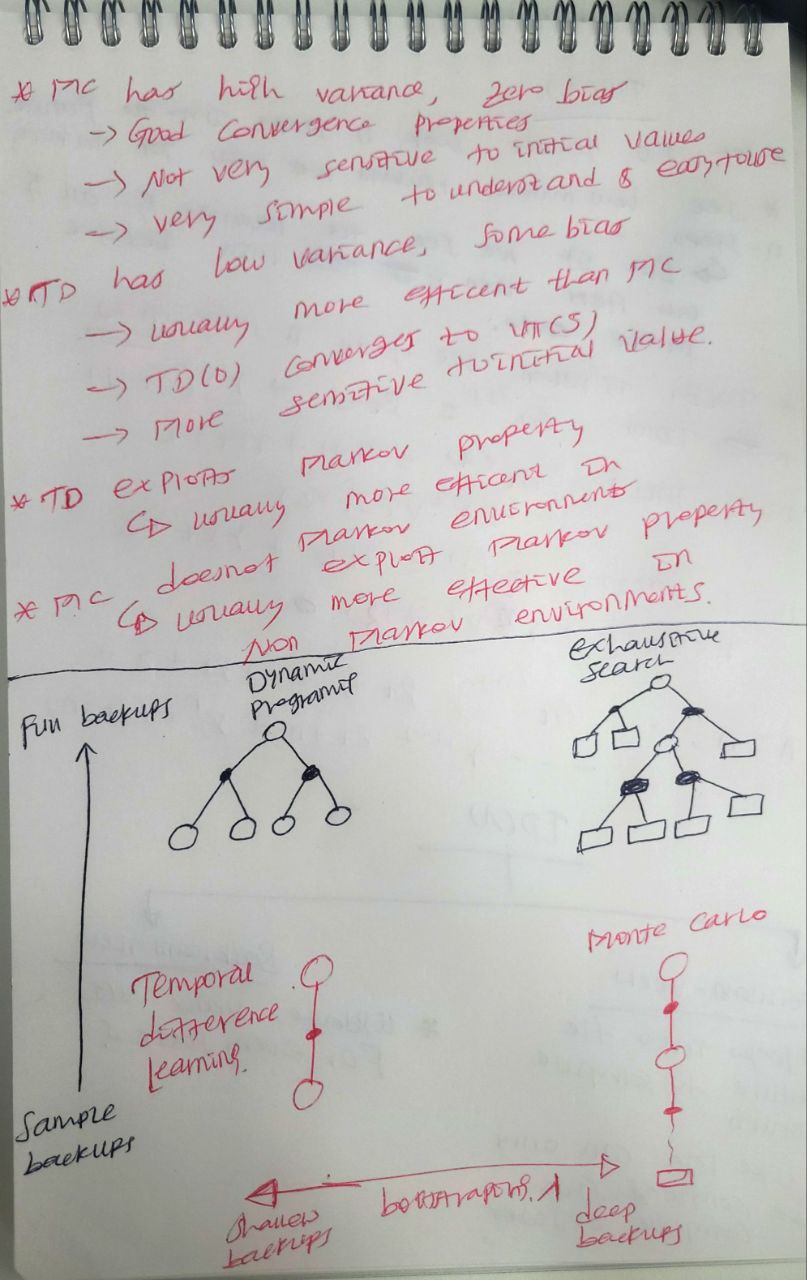 * MC has high variance, zero bias
→ Good Convergence properties
→ Not very sensitive to initial values
→ very simple to understand & easy to use
* TD has low variance, some bias
→ usually more efficent than MC
→ TD(0) converges to Vπ(S)
→ More sensitive to initial value.
* TD exploits Markov property
↳ usually more efficent in
Markov environments
* MC doesnot exploit Markov property
↳ usually more effective in
Non Markov environments.
Full backups
Dynamic
Programig
Exhaustive
search
Monte Carlo
Temporal
difference
learning.
Sample
backups
bootstraping, λ
shallow
backups
deep
backups